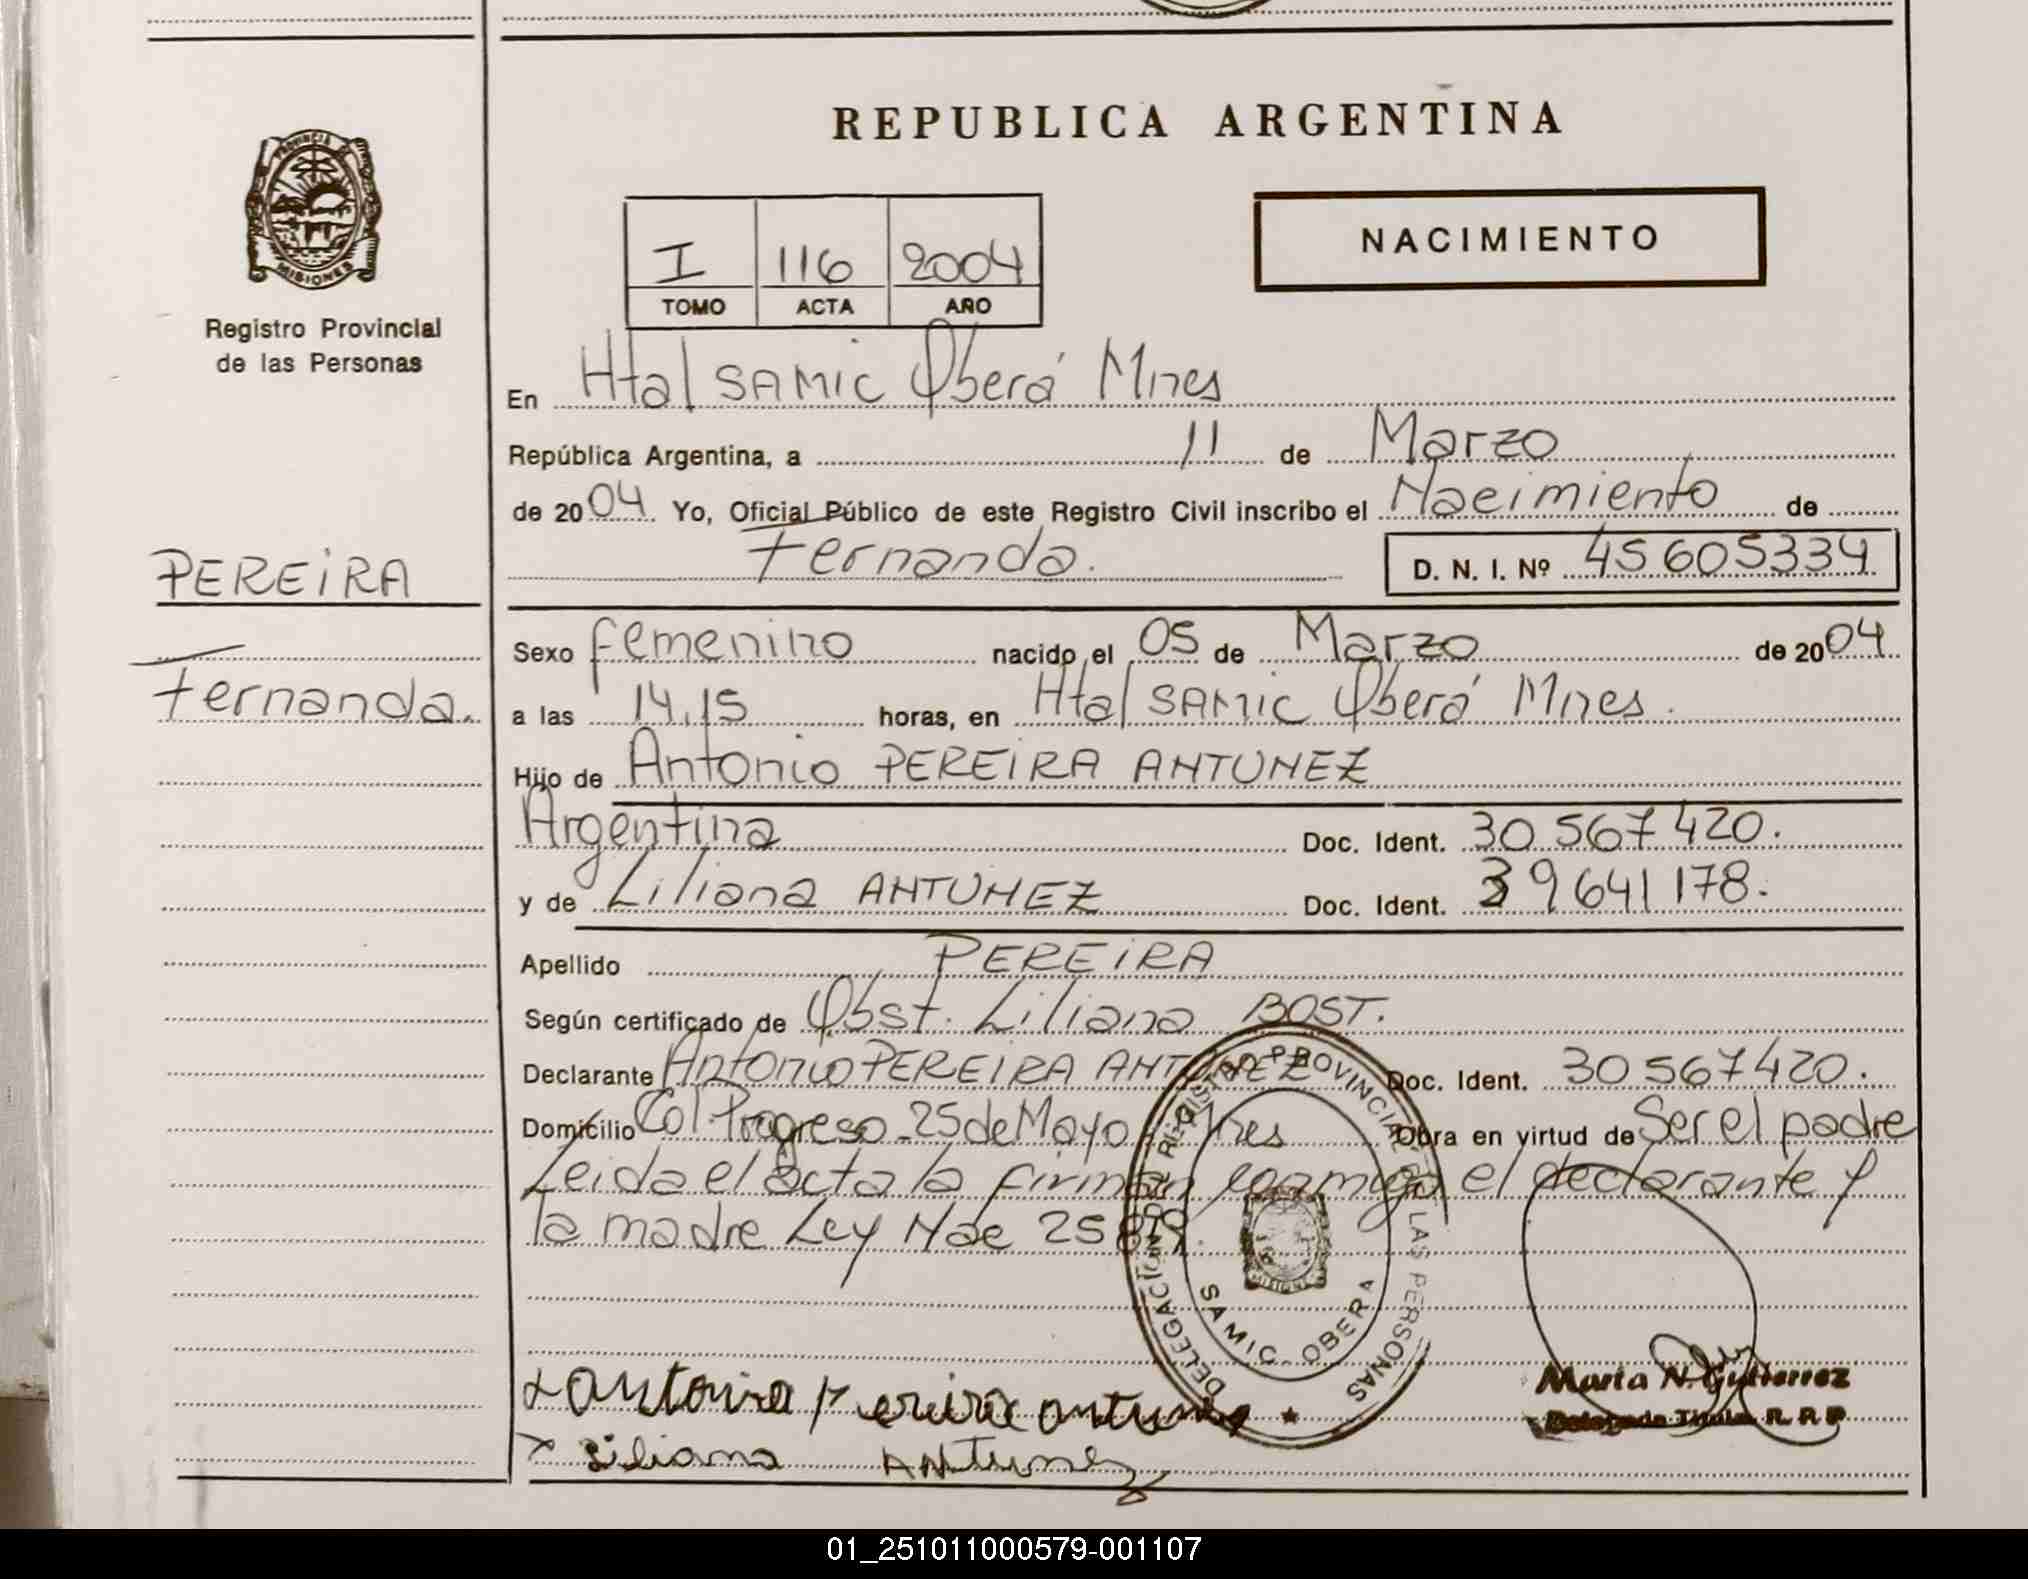 REPUBLICA ARGENTINA
PROVINCIA DE
MISIONES
Registro Provincial
de las Personas
I 116 2004
TOMO ACTA AÑO
NACIMIENTO
En Htal SAMIC Oberá Mnes
República Argentina, a 11 de Marzo
de 2004 Yo, Oficial Público de este Registro Civil inscribo el Nacimiento de
Fernanda. D. N. I. Nº 45605334
PEREIRA
Fernanda.
Sexo femenino nacido el 05 de Marzo de 2004
a las 14,15 horas, en Htal SAMIC Oberá Mnes.
Hijo de Antonio PEREIRA ANTUNEZ
Argentina Doc. Ident. 30 567 420.
y de Liliana ANTUNEZ Doc. Ident. 39641178.
Apellido PEREIRA
Según certificado de Obst. Liliana BOST.
Declarante Antonio PEREIRA ANTUNEZ Doc. Ident. 30 567420.
Domicilio Col. Progreso - 25 de Mayo - Mnes Obra en virtud de Ser el padre
Leida el acta la firman conmigo el declarante y
la madre Ley Nac
DELEGACION REGISTRO PROVINCIAL DE LAS PERSONAS
SAMIC - OBERA
MISIONES
x antonio Pereira antunez
x Liliana ANTunez
Marta N. Gutierrez
Delegada Titular R. R. P
01_251011000579-001107